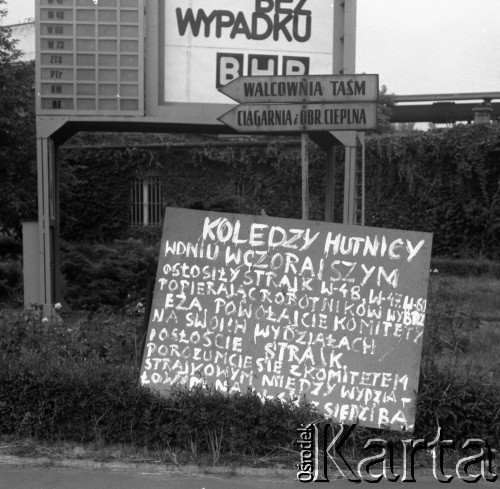 BEZ
WYPADKU
BHP
W-46
W-48
W-60
W-73
ZTS
Ptr
KM
NS
WALCOWNIA TAŚM
CIĄGARNIA i OBR. CIEPLNA
KOLEDZY HUTNICY
W DNIU WCZORAJSZYM
OGŁOSIŁY STRAJK W-48, W-47, W-60
POPIERAJĄC ROBOTNIKÓW WYBRZ
EŻA POWOŁAJCIE KOMITETY
NA SWOICH WYDZIAŁACH
OGŁOŚCIE STRAJK
POROZUMCIE SIĘ Z KOMITETEM
STRAJKOWYM MIĘDZY WYDZIA-
ŁOWYM NA SIEDZIBĄ
ośrodek Karta